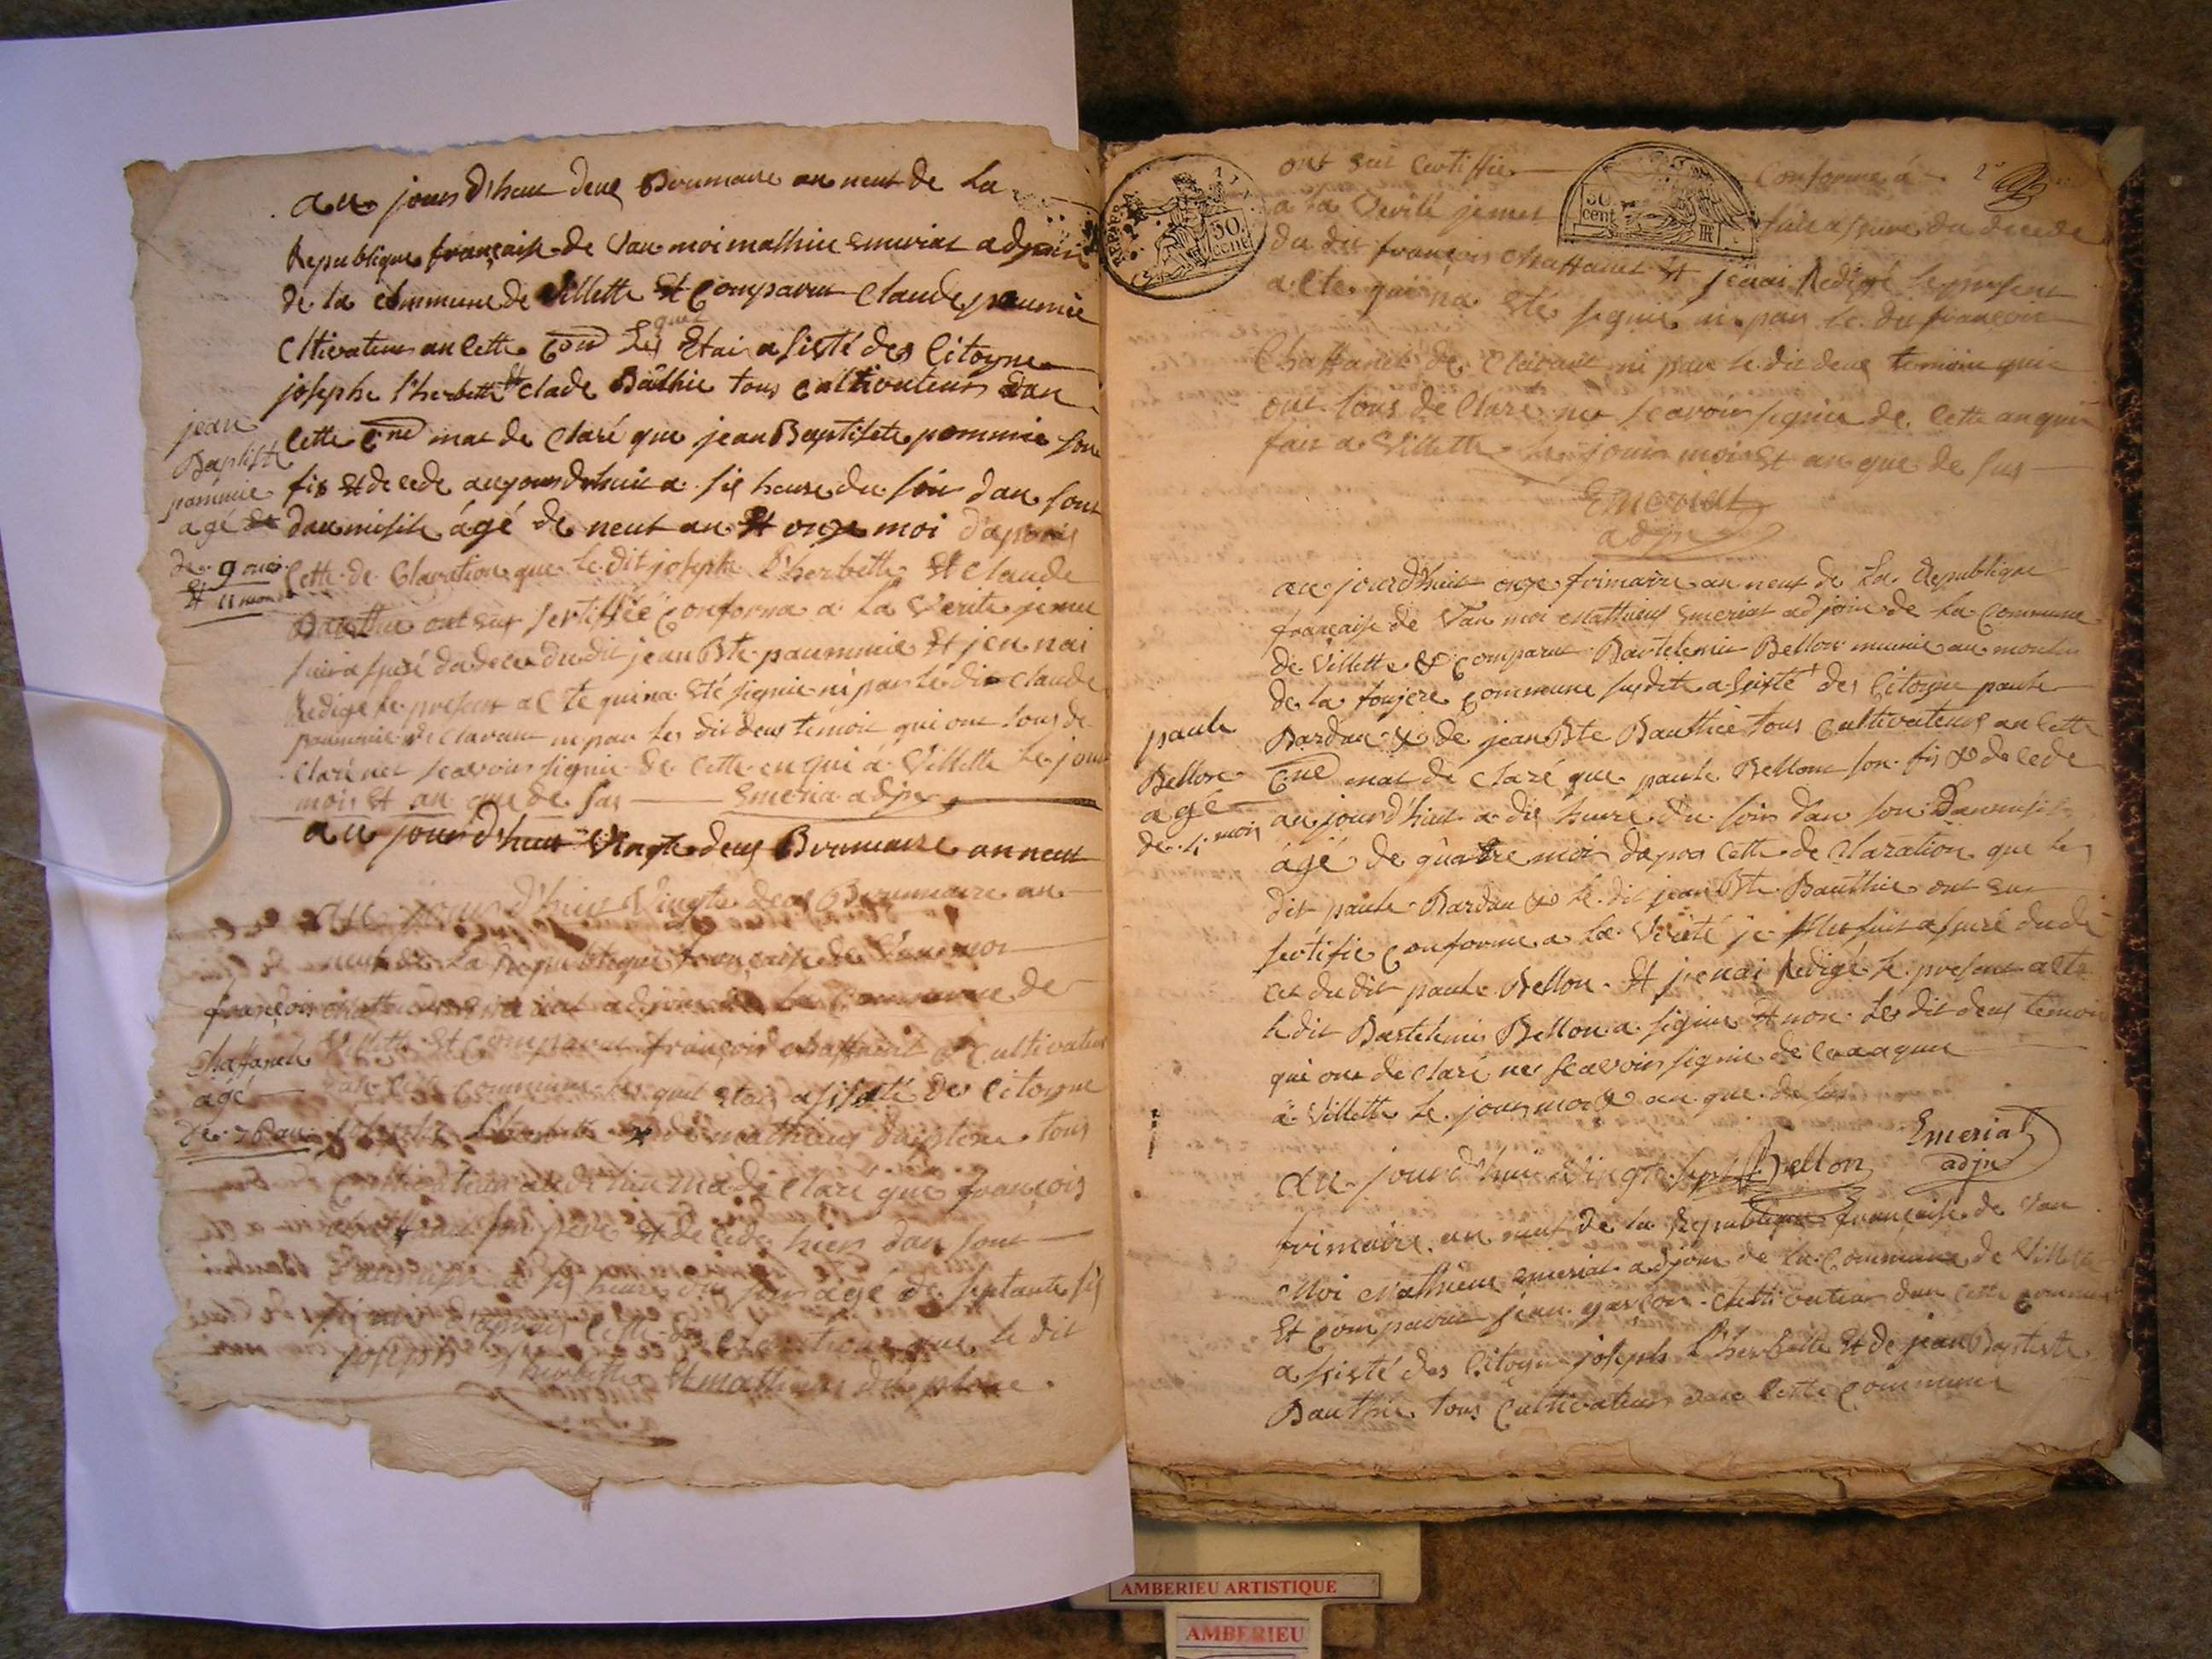 au jours d'huit deus Brumaire an neuf de La
Republique française de Van moi mathieu emeriat adjoin
de la commune de Villette Et Comparut Claude paumie
Cltivateur an cette Cne Lesquel Etai asisté des Citoyne
josephe l'herbette Et clade Bathie tous Cultivateurs dan
cette Cne mat de claré que jean Baptiste pommie son
fis Et de cede aujourdhuit a sis heure du soir dan sont
daumisile âgé de neuf an Et onze moi d'aprais
cette de Claration que le dit joseph l'herbette Et claude
Bauthie ont eus sertiffié Conforme a La Verite je me
suis assuré du deces du dit jean Bte paummie Et jen nai
Redigé le present acte qui na Eté signie ni par le dit claude
paummie de Clarant ni par les dit deus temoit qui ont tous de
Claré net scavoir signie de cette en qui á Villette le jour
mois Et an que de sus Emeria adjn
jean
Baptiste
pammie
agé
de 9 ans
Et 11 mois
au jourd'huit Vingte deus Brumaire an neuf
au jours d'huit Vingte deus Brumaire an
neuf de La Republique française de Van moi
emeriat adjoin de la Commune de
Villette Et Comparut françois chaffanet Cultivateur
an cette commune les quel etai asisité des Citoyne
josephe l'herbette de mathieus tous
Cultivateur mat de Claré que françois
son pere Et de cede hier dan sont
a sis heure du soir agé de septante sis
cette de Claration que le dit
joseph l'herbette Et mathieus
françois
chafanet
âgé
de 76 an
ont eut Certiffie Conforme á
a la Verité je met suis assure du decede
du dit françois chaffanet Et jenai Redigé le present
acte qui na Eté signié ni par le dit françois
Chaffanet de Clarant ni par le dit deus temoin qui
ont tous de Claré ne scavoir signie de cette an qui
fait a Villette le jour mois Et an que de sus
Emeriat
adjn
REP. FRA.
50.
cent.
50.
cent.
au jourd'huit onze frimaire an neuf de La Republique
française de Van moi Mathieus emeriat adjoin de la Commune
de Villette & Comparut Bartelemie Bellon munie au moulin
de la foujere commune susdite a sisté des Citoyne paule
Bardan & de jean Bte Bauthie tous Cultivateurs an cette
Cne mat de claré que paule Bellon son fis & de cede
au jourd'huit a dis heure du soir dan son Daumisil
âgé de quatre moi dapres cette de Claration que le
dit paule Bardan & le dit jean Bte Bauthie ont eus
sertifie Conforme a la Verité je Me suis assuré du dé
ces du dit paule Bellon Et jenai Redigé le present acte
le dit Bartelemie Bellon a signie Et non Les dit deus temoin
qui ont de claré ne scavoir signie de
a Villette le jour moi & an que de sus
paule
Bellon
agé
de 4 mois
Emeriat
adjn
Bellon
au jourd'hui Vingte sept
frimaire an neuf de la Republique française de Van
Moi Mathieus emeriat adjoin de la Commune de Villette
Et Comparut jean garçon Cultivateur dan cette commune
a sisté des Citoyne joseph l'herbette Et de jean Baptiste
Bauthie tous Cultivateurs dan cette commune
AMBERIEU ARTISTIQUE
AMBERIEU